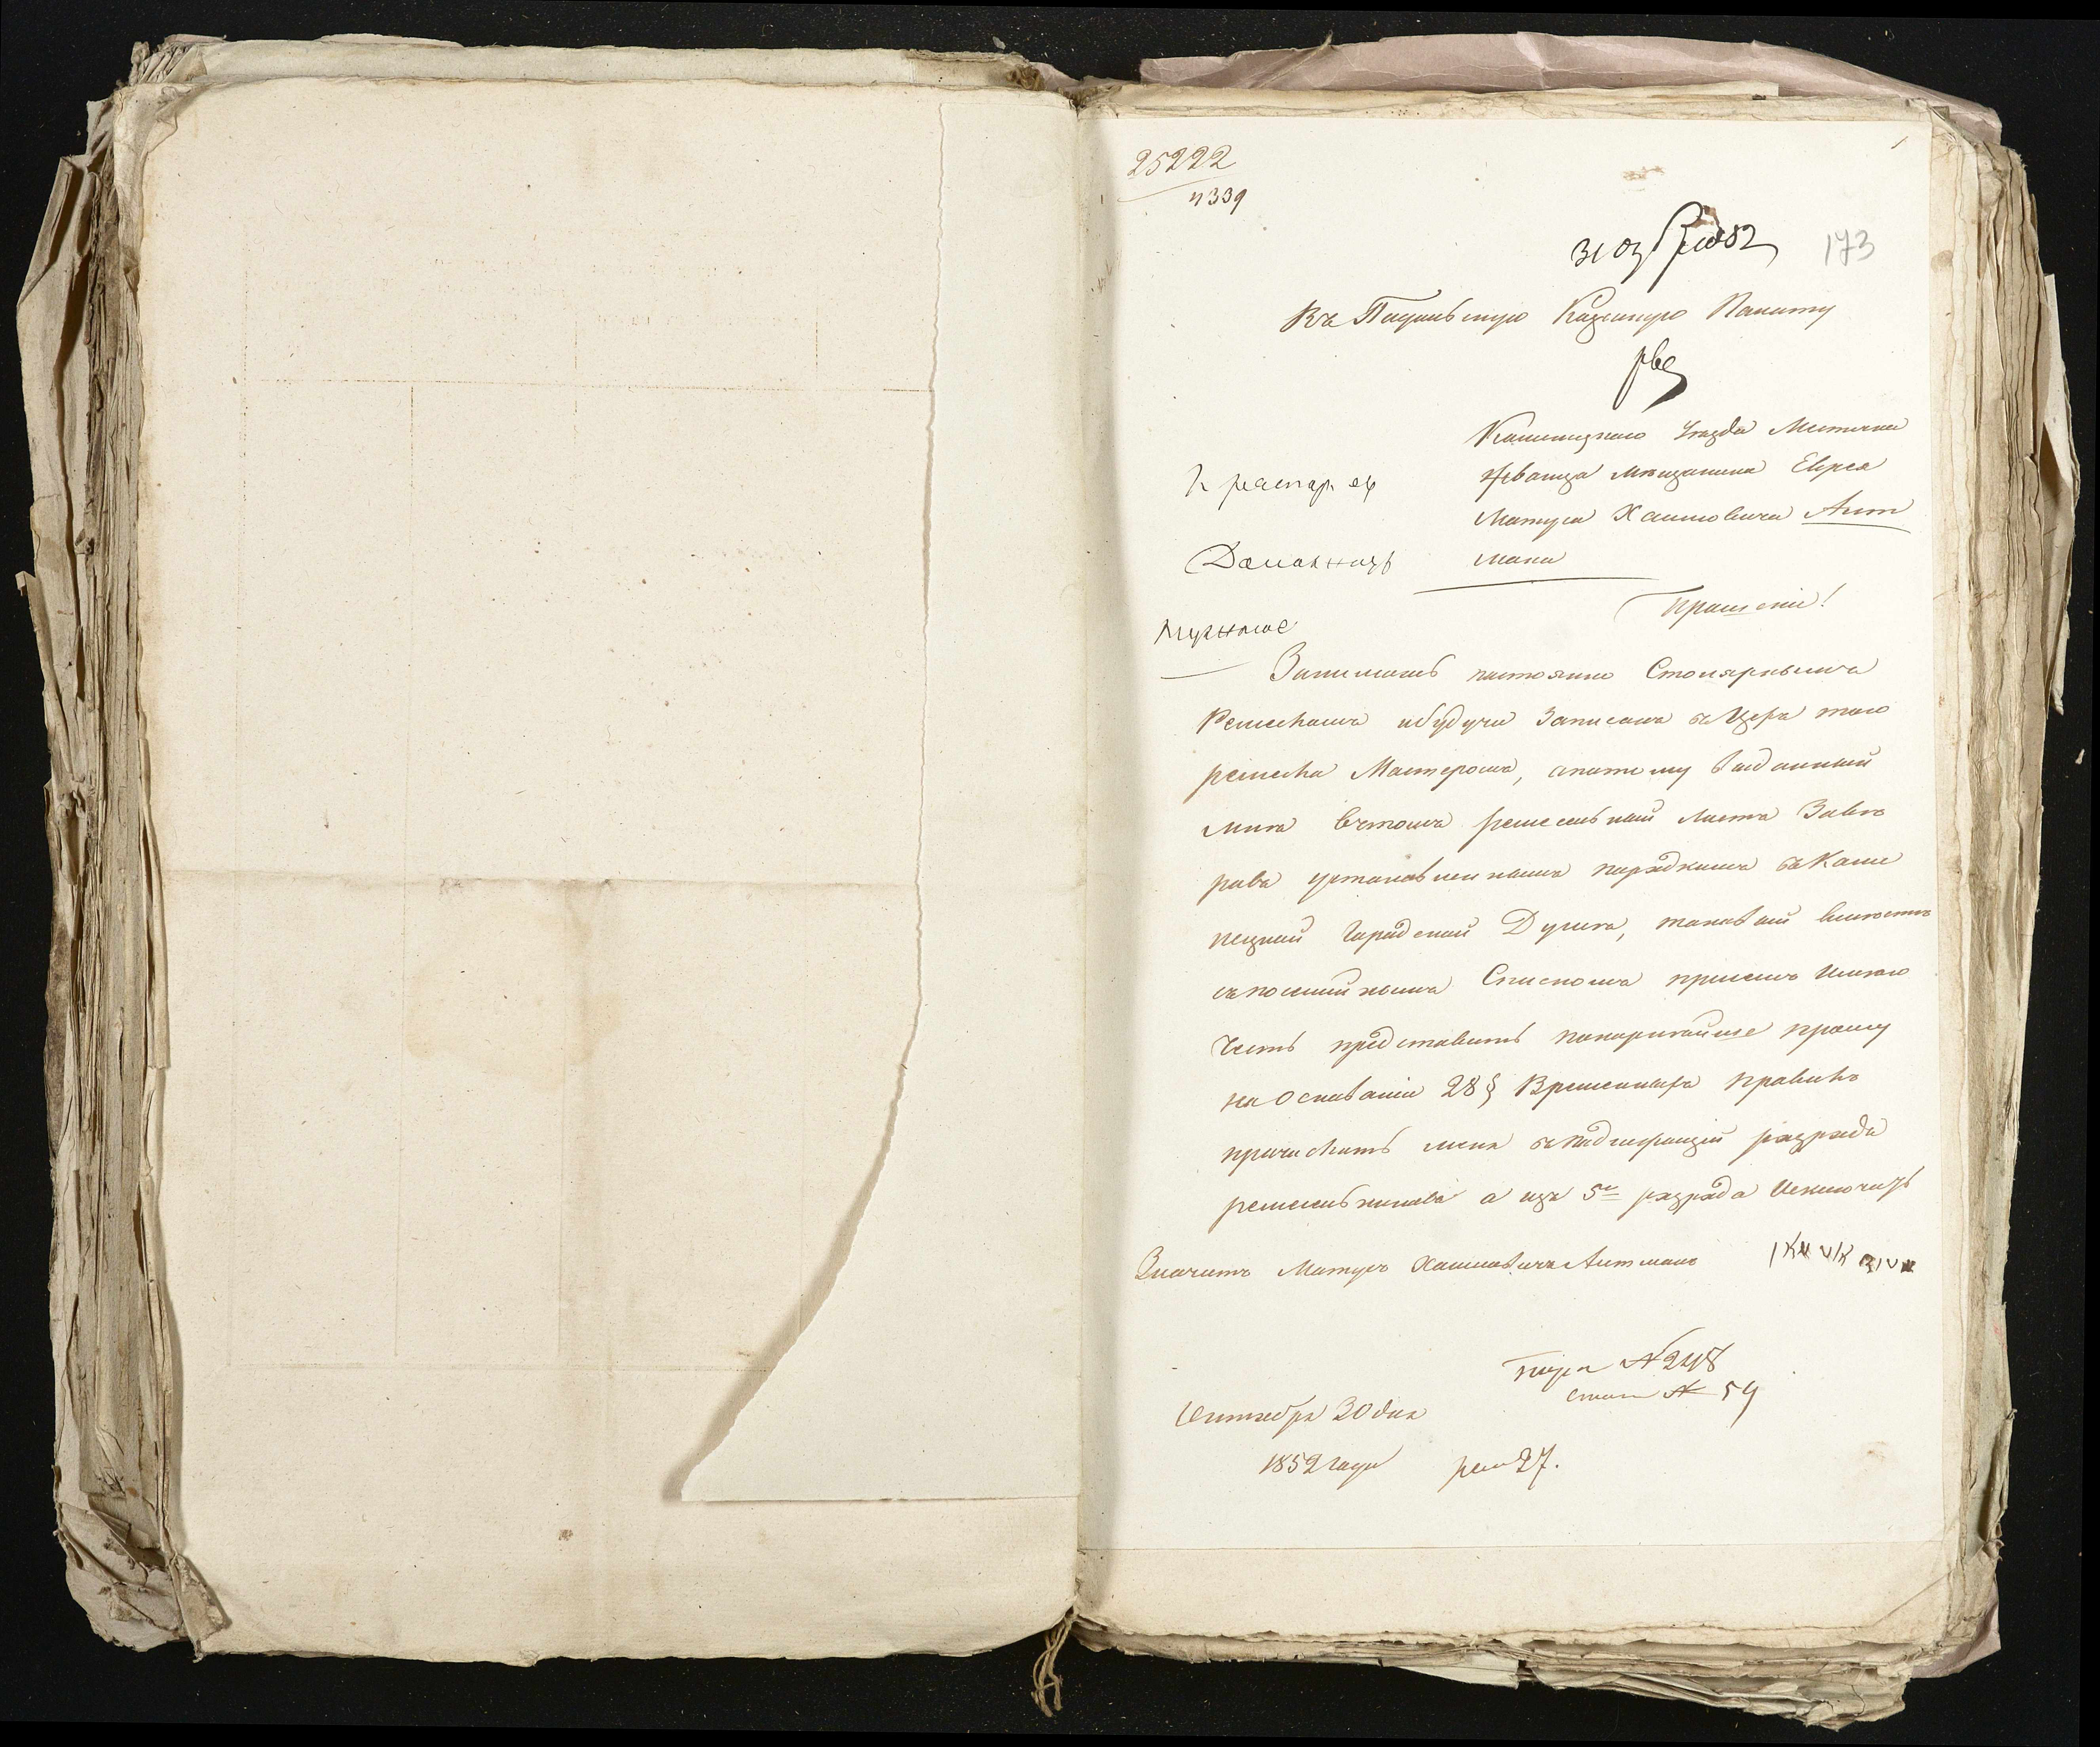 25222
4339
173
Въ Подольскую Казенную Палату
Каменецкаго Уѣзда Мѣстечка
Жванца мѣщанина Еврея
Матуса Хаимовича Аит
мана
Прошеніе!
Нужное
Занимаясь постоянно Столярнымъ
Ремесломъ и будучи Записанъ въ Цехъ того
ремесла Мастеромъ, а потому выданный
мнѣ въ томъ ремесленный листъ Завѣ
ривъ установленнымъ порядкомъ въ Каме
нецкой Городской Думѣ, таковый вмѣстѣ
съ посемейнымъ Спискомъ при семъ Имѣю
Честь представить покорнѣйше прошу
на Основаніи 28 § Временныхъ правилъ
причислить меня въ подлежащій разрядъ
ремесленниковъ а изъ 5го разряда Исключить
Значитъ Матусъ Хаимовичъ Аитманъ
№ 248
№ 59
Сентября 30 дня
1852 года
рем 27.